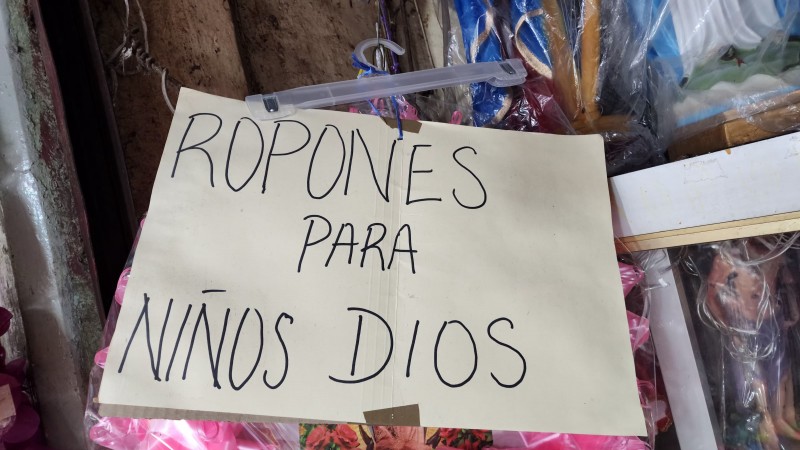 ROPONES
PARA
NIÑOS DIOS